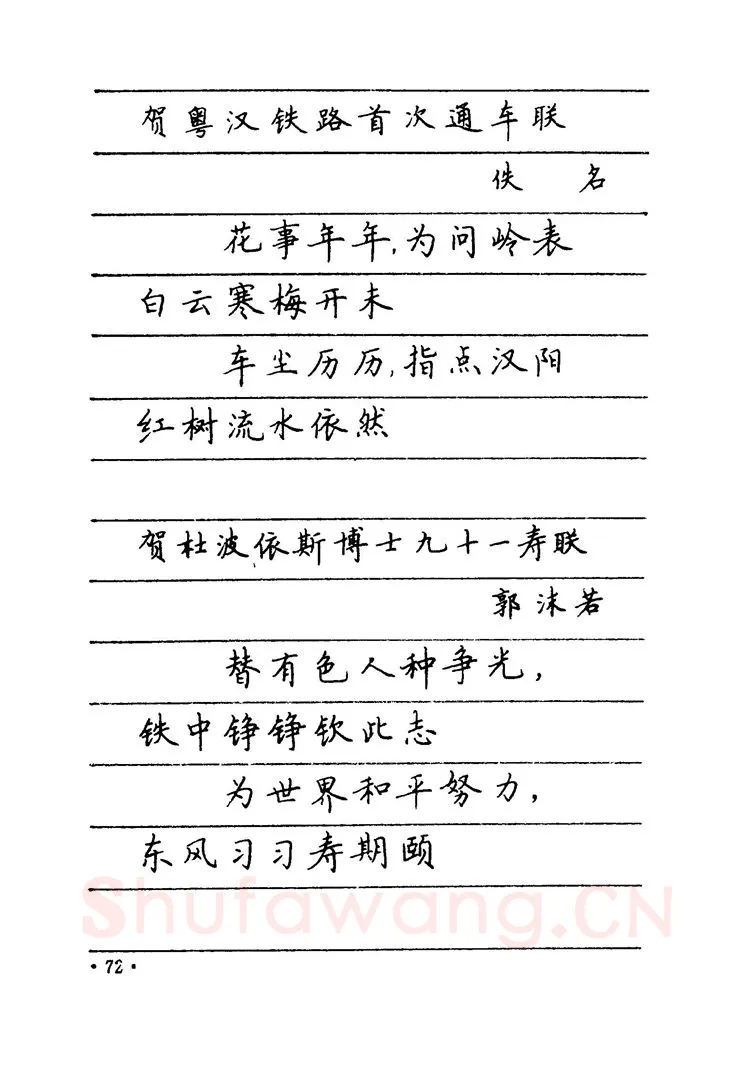 贺粤汉铁路首次通车联
佚 名
花事年年,为问岭表
白云寒梅开未
车尘历历,指点汉阳
红树流水依然
贺杜波依斯博士九十一寿联
郭沫若
替有色人种争光,
铁中铮铮钦此志
为世界和平努力,
东风习习寿期颐
Shufawang.CN
·72·